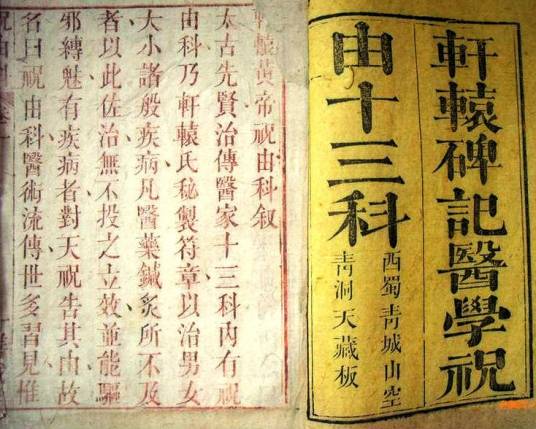 軒轅碑記醫學祝
由十三科
西蜀青城山空
青洞天藏板
軒轅黃帝祝由科叙
太古先賢治傳醫家十三科內有祝
由科乃軒轅氏秘製符章以治男女
大小諸般疾病凡醫藥鍼灸所不及
者以此佐治無不投之立效並能驅
邪縛魅有疾病者對天祝告其由故
名曰祝由科醫術流傳世多習見惟